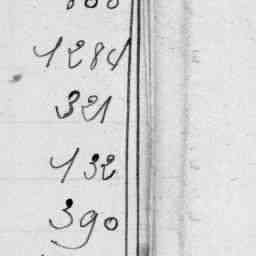 1284
321
132
390